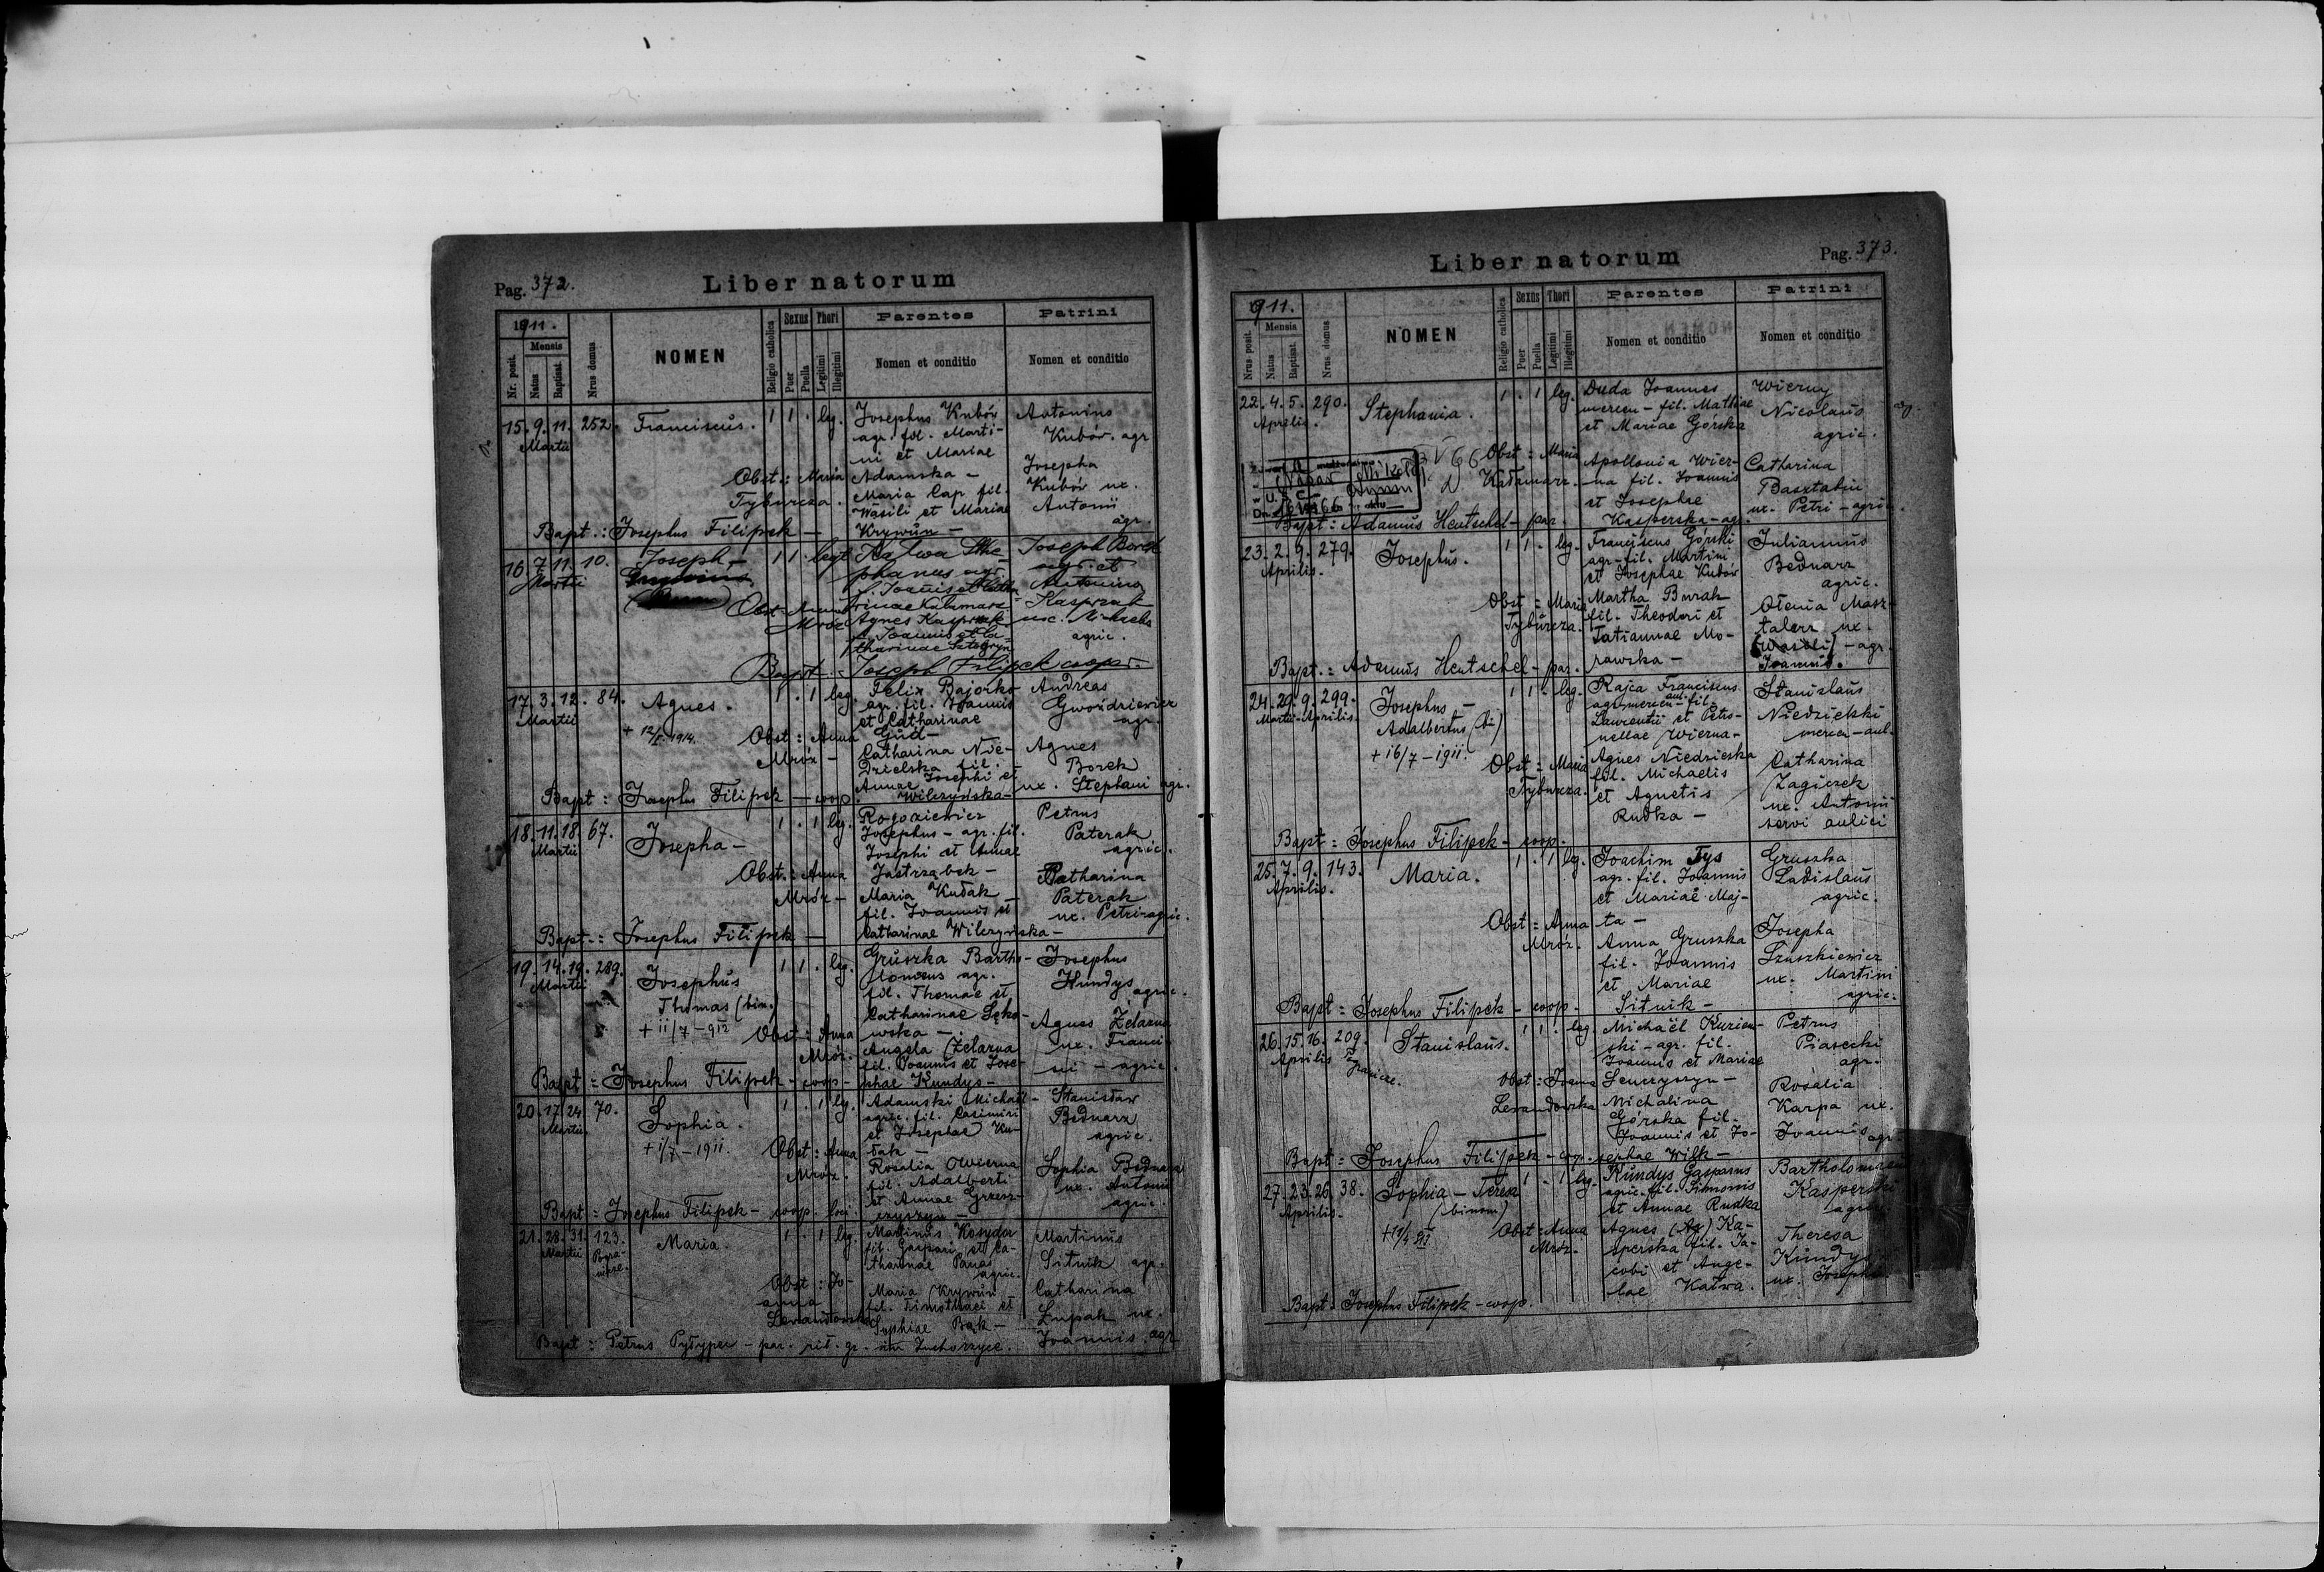 Pag. 372.
Liber natorum
1911.
Nr. posit.
Mensis
Natus
Baptisat.
Nrus domus
NOMEN
Religio catholica
Sexus
Puer
Puella
Thori
Legitimi
Illegitimi
Parentes
Nomen et conditio
Patrini
Nomen et conditio
15. 9. 11. 252.
Martii
Franciscus.
1 1 . leg.
Josephus Kubów
agr. fil. Marti-
ni et Mariae
Adamska -
Maria Cap fil.
Wasili et Mariae
Krywun -
Antonius
Kubów. agr
Josepha
Kubów ux.
Antonii
agr.
Obst.: Maria
Tyburcza.
Bapt.: Josephus Filipek -
16 7. 11. 10.
Martii
Joseph -
1 1
Ste-
phanus agr.
Agnes Kasprzak
f. Joannis et Ca-
tharinae
Joseph Borek
agr. et
Antonina
Kasprzak
ux. Michaelis
agric.
Obst. Anna
Mróz
Bapt.: Joseph Filipek coop.
17. 3. 12. 84.
Martii
Agnes.
1 . 1 leg.
+ 12/I 1914.
Felix Bajorko
agr. fil. Joannis
et Catharinae
Gud -
Catharina Nie-
dzielska fil.
Josephi et
Annae
Wilczyńska -
Andreas
Gwoździewicz
agr.
Agnes
Borek
ux. Stephani agr.
Obst: Anna
Mróz -
Bapt: Josephus Filipek - coop.
18. 11. 18. 67.
Martii
Josepha -
1 . 1 leg.
Rogoziewicz
Josephus - agr. fil.
Josephi et Annae
Jastrząbek -
Maria Kudak -
fil. Joannis et
Catharinae Wilczyńska -
Petrus
Paterak
agric.
Catharina
Paterak
ux. Petri - agric.
Obst.: Anna
Mróz -
Bapt.: Josephus Filipek -
19. 14. 19. 289.
Martii
Josephus
Thomas (bin.)
+ 11/7 - 912
1 1 . leg.
Gruszka Bartho-
lomeus agr.
fil. Thomae et
Catharinae Sęko-
wska -
Angela Żelazna
fil. Joannis et Jose-
phae Kundys -
Josephus
Kundys
agric.
Agnes Żelazna
ux. Franci-
agric.
Obst: Anna
Mróz.
Bapt: Josephus Filipek - coop -
20. 17. 24. 70.
Martii.
Sophia.
+ 1/7 - 1911.
1 . 1 leg.
Adamski Michael -
agric. fil. Casimiri
et Josephae Ku-
dak -
Rosalia
fil. Adalberti
et Annae Grzesz-
czyszyn -
Stanisław
Bednarz
agric.
Sophia Bednarz
ux. Antonii
agric.
Obst: Anna
Mróz.
Bapt: Josephus Filipek - coop. loci.
21. 28. 31. 123.
Martii
Maria.
1 . 1 leg.
Martinus Kosydor
fil. Gaspari et Ca-
tharinae Panas
agric.
Maria Krywun -
fil. Timothaei et
Sophiae Bąk -
Martinus
Sitnik agr.
Catharina
Lupak ux.
Joannis agr
Obst: Jo-
anna
Lewandowska
Bapt: Petrus Pyłypec - par. rit. gr. Żuchorzyce.
Pag. 373.
Liber natorum
1911.
Nrus posit.
Mensis
Natus
Baptisat.
Nrus domus
NOMEN
Religio catholica
Sexus
Puer
Puella
Thori
Legitimi
Illegitimi
Parentes
Nomen et conditio
Patrini
Nomen et conditio
22. 4. 5. 290.
Aprilis.
Stephania.
1 . 1 leg.
Duda Joannes
mercen - fil. Mathiae
et Mariae Górska
Apollonia Wier-
na fil. Joannis
et Josephae
Kasperska - agr.
Wierny
Nicolaus
agric.
Catharina
Basztabin
ux. Petri - agric.
Obst: Maria
Kałamarz.
Bapt: Adamus Hentschel - par.
23. 2. 9. 279.
Aprilis.
Josephus.
1 1 . leg.
Franciscus Górski
agr - fil. Martini
et Josephae Kubów
Martha Burak
fil. Theodori et
Tatiannae Mo-
rawska -
Julianus
Bednarz
agric.
Olenia Masz-
talerz ux.
(Wasili) - agr.
Joannis.
Obst: Maria
Tyburcza.
Bapt.: Adamus Hentschel - par.
24. 29. 9. 299.
Martii - Aprilis.
Josephus -
Adalbertus (bi)
+ 16/7 - 1911.
1 1 . leg.
Rajca Franciscus
mercen - fil.
Laurentii et Petro-
nellae Wierna -
Agnes Niedzielska
fil. Michaelis
et Agnetis
Rudka -
Stanislaus
Niedzielski
mercen - aul.
Catharina
Zagiczek
ux. Antonii
servi aulici
Obst: Maria
Tyburcza.
Bapt: Josephus Filipek - coop.
25. 7. 9. 143.
Aprilis.
Maria.
1 . 1 leg.
Joachim Tys
agr. fil. Joannis
et Mariae Maj-
ta -
Anna Gruszka
fil. Joannis
et Mariae
Sitnik -
Gruszka
Ladislaus
agric.
Josepha
Szuszkiewicz
ux. Martini
agric.
Obst: Anna
Mróz.
Bapt: Josephus Filipek - coop.
26. 15. 16. 209.
Aprilis
Stanislaus.
1 1 . leg.
Michaël Kurien-
ski - agr. fil.
Joannis et Mariae
Senczyszyn -
Michalina
Górska fil.
Joannis et Jo-
sephae Wilk -
Petrus
Piasecki
agr.
Rosalia
Karpa ux.
Joannis agr.
Obst: Joanna
Lewandowska
Bapt: Josephus Filipek - coop.
27. 23. 26. 38.
Aprilis.
Sophia - Teresa
(binom)
1 . 1 leg.
Kundys Gasparus
agric. fil. Simeonis
et Annae Rudka
Agnes (Ag) Ka-
sperska fil. Ja-
cobi et Ange-
lae Kałwa.
Bartholomeus
Kasperski
Theresa
Kundys
ux. Josephi
Obst: Anna
Mróz.
Bapt: Josephus Filipek - coop.